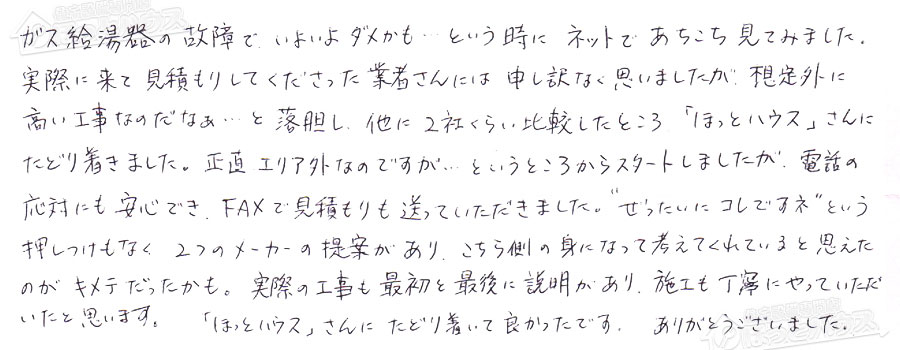 ガス給湯器の故障で、いよいよダメかも…という時に ネットで あちこち見てみました。
実際に来て見積もりしてくださった業者さんには 申し訳なく思いましたが、想定外に
高い工事なのだなぁ…と落胆し、他に2社くらい比較したところ、「ほっとハウス」さんに
たどり着きました。正直エリア外なのですが…というところからスタートしましたが、電話の
応対にも安心でき、FAXで見積もりも送っていただきました。“ぜったいにコレですネ”という
押しつけもなく、2つのメーカーの提案があり、こちら側の身になって考えてくれていると思えた
のがキメテだったかも。実際の工事も最初と最後に説明があり、施工も丁寧にやっていただ
いたと思います。 「ほっとハウス」さんに たどり着いて良かったです。 ありがとうございました。